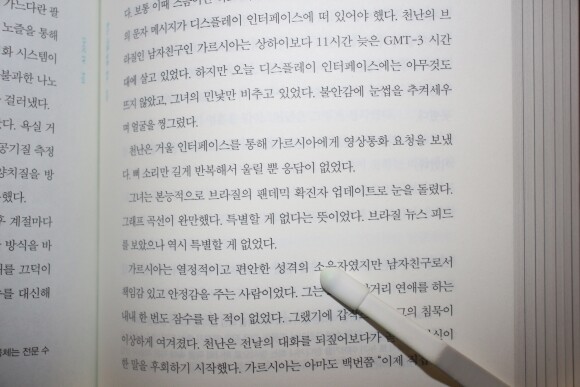 가느다란 팔
노즐을 통해
화 시스템이
불과한 나노
걸러냈다.
다. 욕실 거
공기질 측정
양치질을 방
했다.
후 계절마다
방식을 바
를 끄덕이
를 대신해
체는 전문 수
다. 보통 이때
의 문자 메시지가 디스플레이 인터페이스에 떠 있어야 했다. 천난의 브
라질인 남자친구인 가르시아는 상하이보다 11시간 늦은 GMT-3 시간
대에 살고 있었다. 하지만 오늘 디스플레이 인터페이스에는 아무것도
뜨지 않았고, 그녀의 민낯만 비추고 있었다. 불안감에 눈썹을 추켜세우
며 얼굴을 찡그렸다.
천난은 거울 인터페이스를 통해 가르시아에게 영상통화 요청을 보냈
다. 삐 소리만 길게 반복해서 울릴 뿐 응답이 없었다.
그녀는 본능적으로 브라질의 팬데믹 확진자 업데이트로 눈을 돌렸다.
그래프 곡선이 완만했다. 특별할 게 없다는 뜻이었다. 브라질 뉴스 피드
를 보았으나 역시 특별할 게 없었다.
가르시아는 열정적이고 편안한 성격의 소유자였지만 남자친구로서
책임감 있고 안정감을 주는 사람이었다. 그는 거리 연애를 하는
내내 한 번도 잠수를 탄 적이 없었다. 그랬기에 그의 침묵이
이상하게 여겨졌다. 천난은 전날의 대화를 되짚어보다가
한 말을 후회하기 시작했다. 가르시아는 아마도 백번쯤 “이제